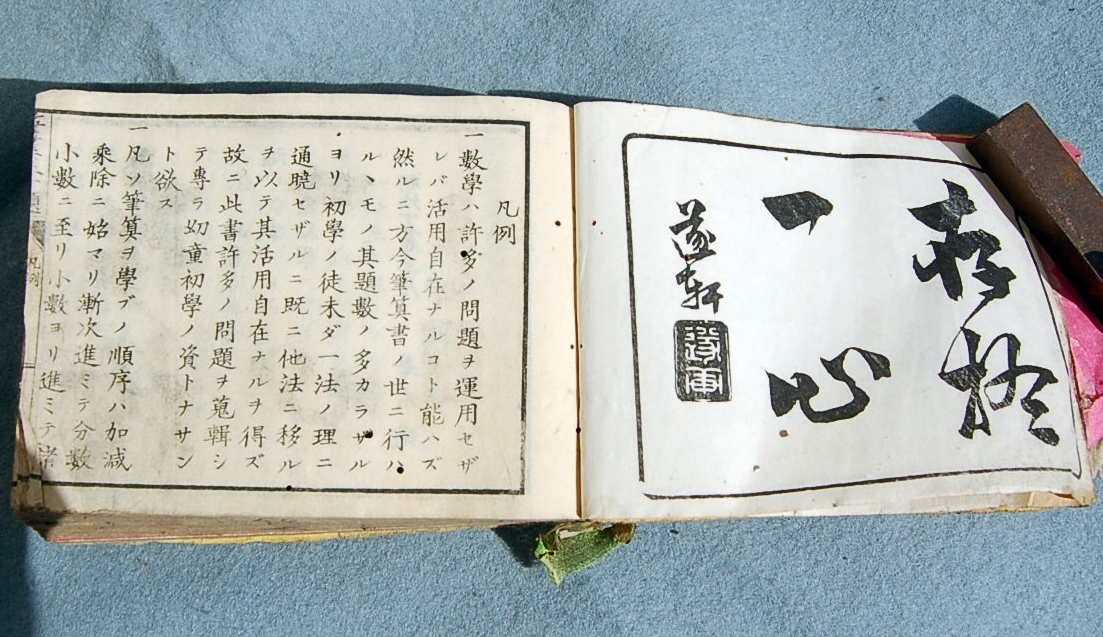 存於
一心
遂軒
凡例
一數學ハ許多ノ問題ヲ運用セザ
レバ活用自在ナルコト能ハズ
然ルニ方今筆算書ノ世ニ行ハ
ルヽモノ其題數ノ多カラザル
ヨリ初學ノ徒未ダ一法ノ理ニ
通曉セザルニ既ニ他法ニ移ル
ヲ以テ其活用自在ナルヲ得ズ
故ニ此書許多ノ問題ヲ蒐輯シ
テ專ラ幼童初學ノ資トナサン
ト欲ス
一凡ソ筆算ヲ學ブノ順序ハ加減
乘除ニ始マリ漸次進ミテ分數
小數ニ至リ小數ヨリ進ミテ諸
凡例